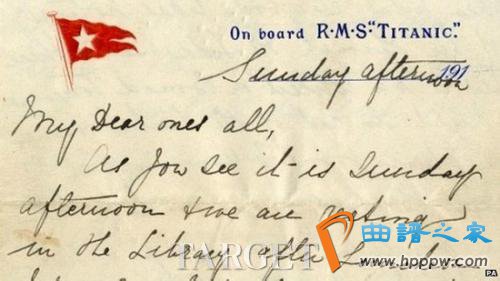 On board R·M·S·"TITANIC."
Sunday afternoon 191
My Dear ones all,
As you see it is Sunday
afternoon & we are resting
in the Library after
TARGET
曲谱之家
www.hppw.com
PA